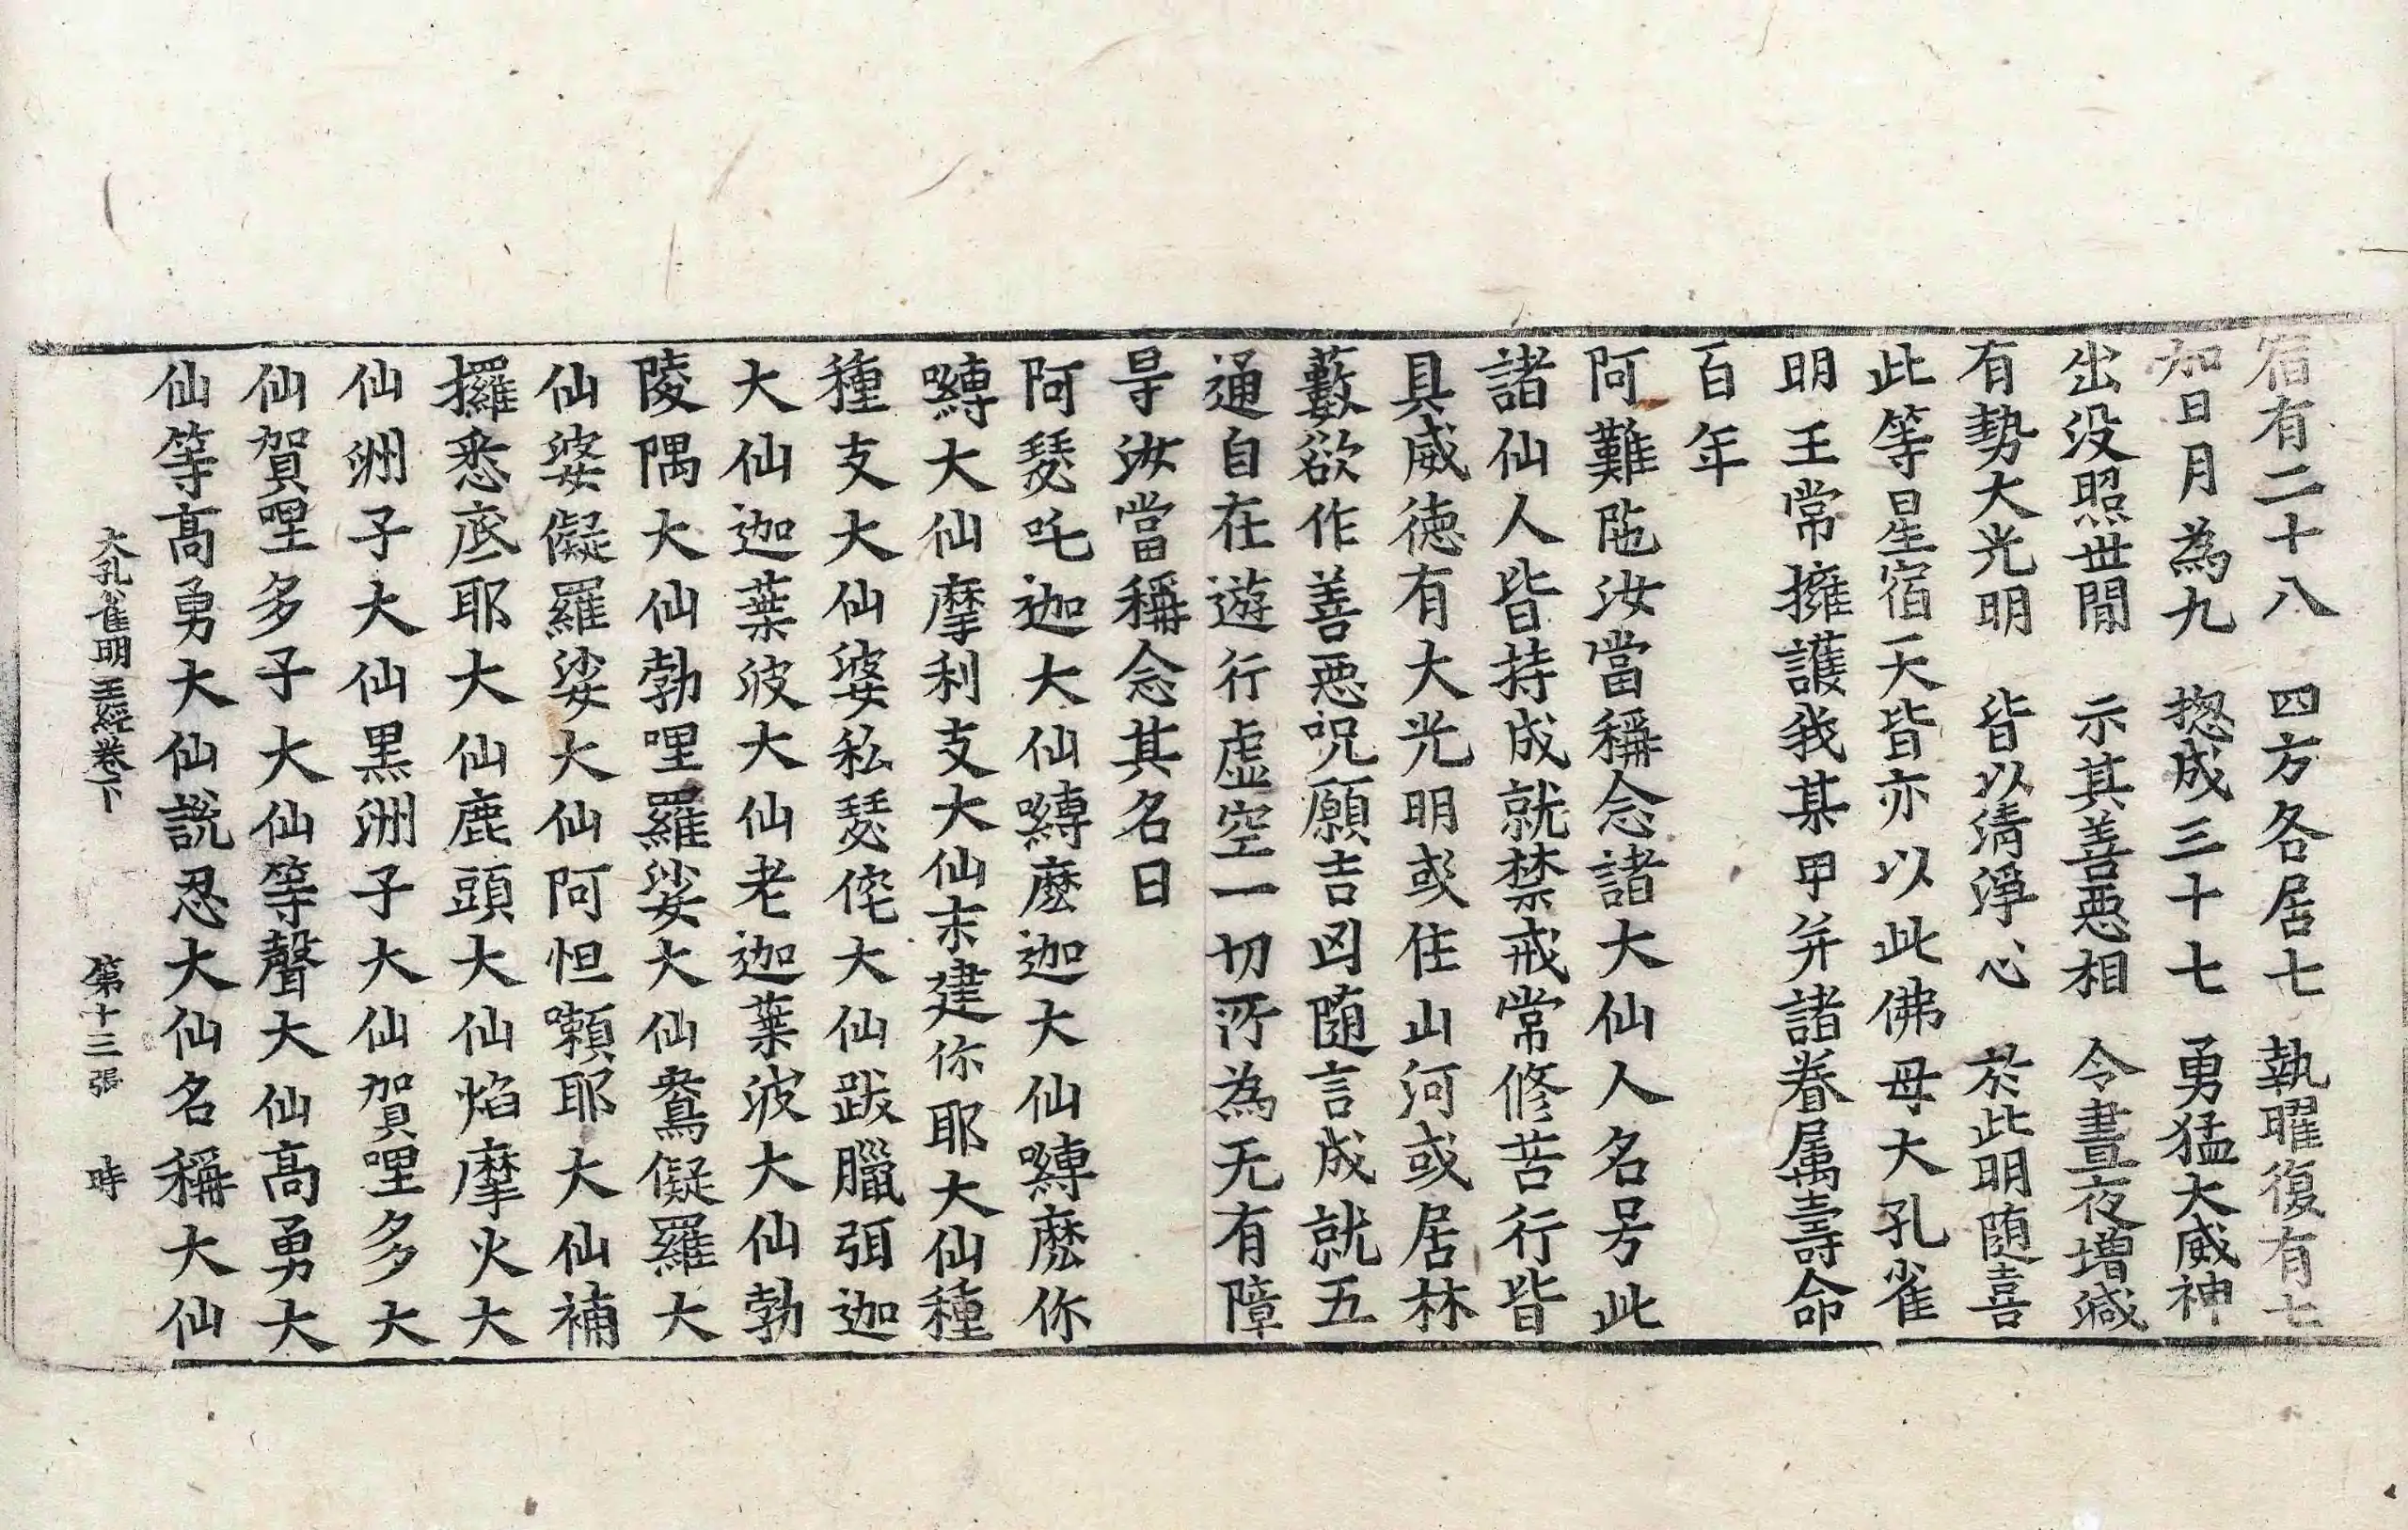 宿有二十八　四方各居七　執曜復有七
加日月為九　揔成三十七　勇猛大威神
出没照世閒　示其善惡相　令晝夜增減
有勢大光明　皆以清淨心　於此明随喜
此等星宿天皆亦以此佛母大孔雀
明王常擁護我某甲并諸眷属壽命
百年
阿難陁汝當稱念諸大仙人名号此
諸仙人皆持成就禁戒常修苦行皆
具威德有大光明或住山河或居林
藪欲作善惡呪願吉凶随言成就五
通自在遊行虛空一切所為无有障
㝵汝當稱念其名曰
阿瑟吒迦大仙嚩麽迦大仙嚩麽你
嚩大仙摩利支大仙末建你耶大仙種
種支大仙婆私瑟侘大仙跋臘弭迦
大仙迦葉波大仙老迦葉波大仙勃
陵隅大仙勃哩羅娑大仙鴦儗羅大
仙婆儗羅娑大仙阿怛囉耶大仙補
攞悉底耶大仙鹿頭大仙焰摩火大
仙洲子大仙黒洲子大仙賀哩多大
仙賀哩多子大仙等聲大仙高勇大
仙等高勇大仙說忍大仙名稱大仙
大孔雀明王經卷下　第十三張　時